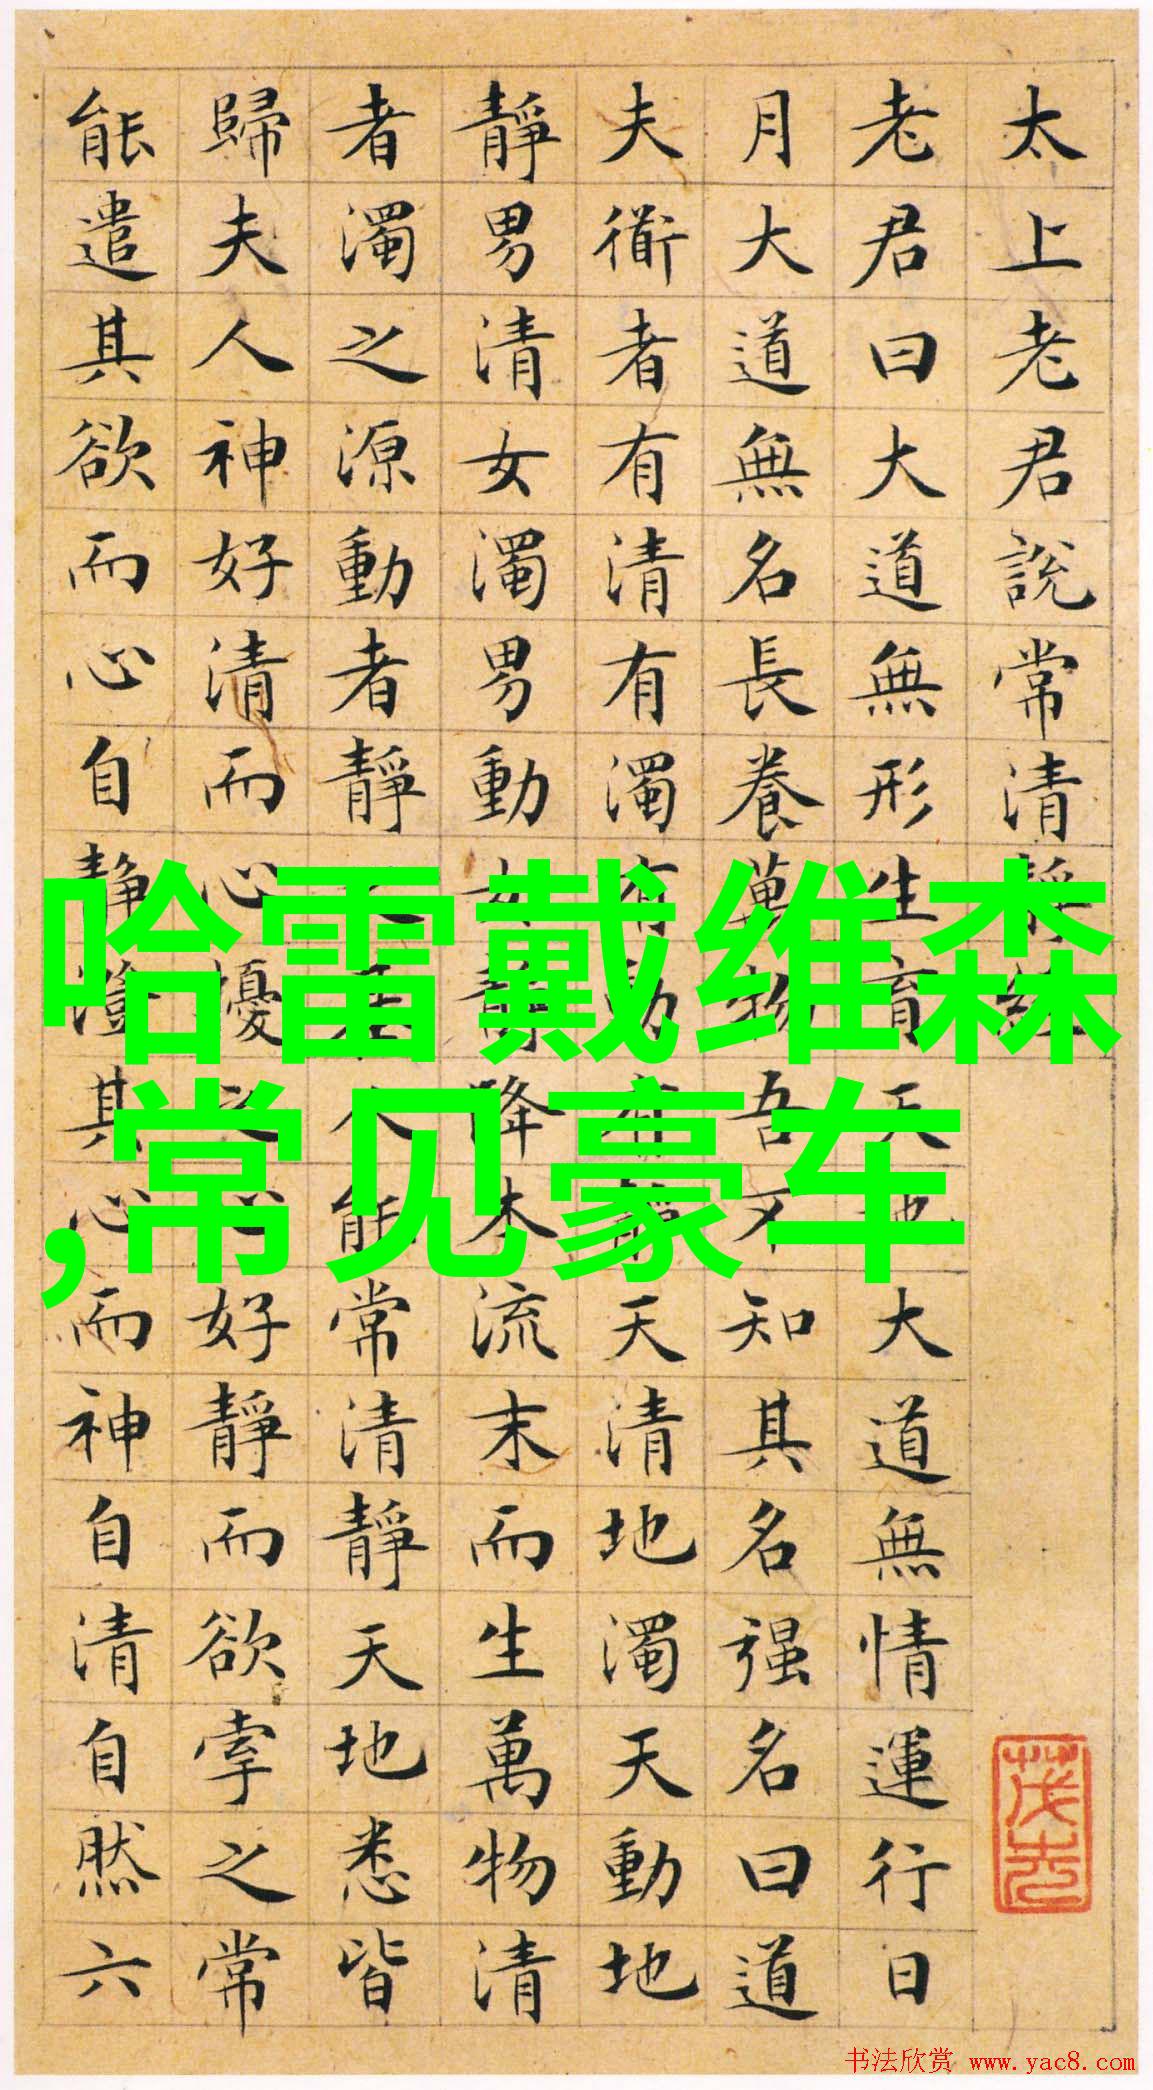 太上老君說常清靜經
老君曰大道無形生育天地大道無情運行日
月大道無名長養萬物吾不知其名强名曰道
夫衜者有清有濁有動有靜天清地濁天動地
靜男清女濁男動女靜降本流末而生萬物清
者濁之源動者靜之基人能常清靜天地悉皆
歸夫人神好清而心擾之心好靜而欲牽之常
能遣其欲而心自靜澄其心而神自清自然六
哈雷戴维森
,常见豪车
书法欣赏 www.yac8.com